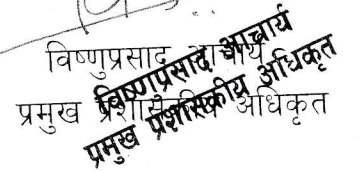 विष्णुप्रसाद आचार्य
प्रमुख प्रशासकीय अधिकृत
विष्णुप्रसाद आचार्य
प्रमुख प्रशासकीय अधिकृत